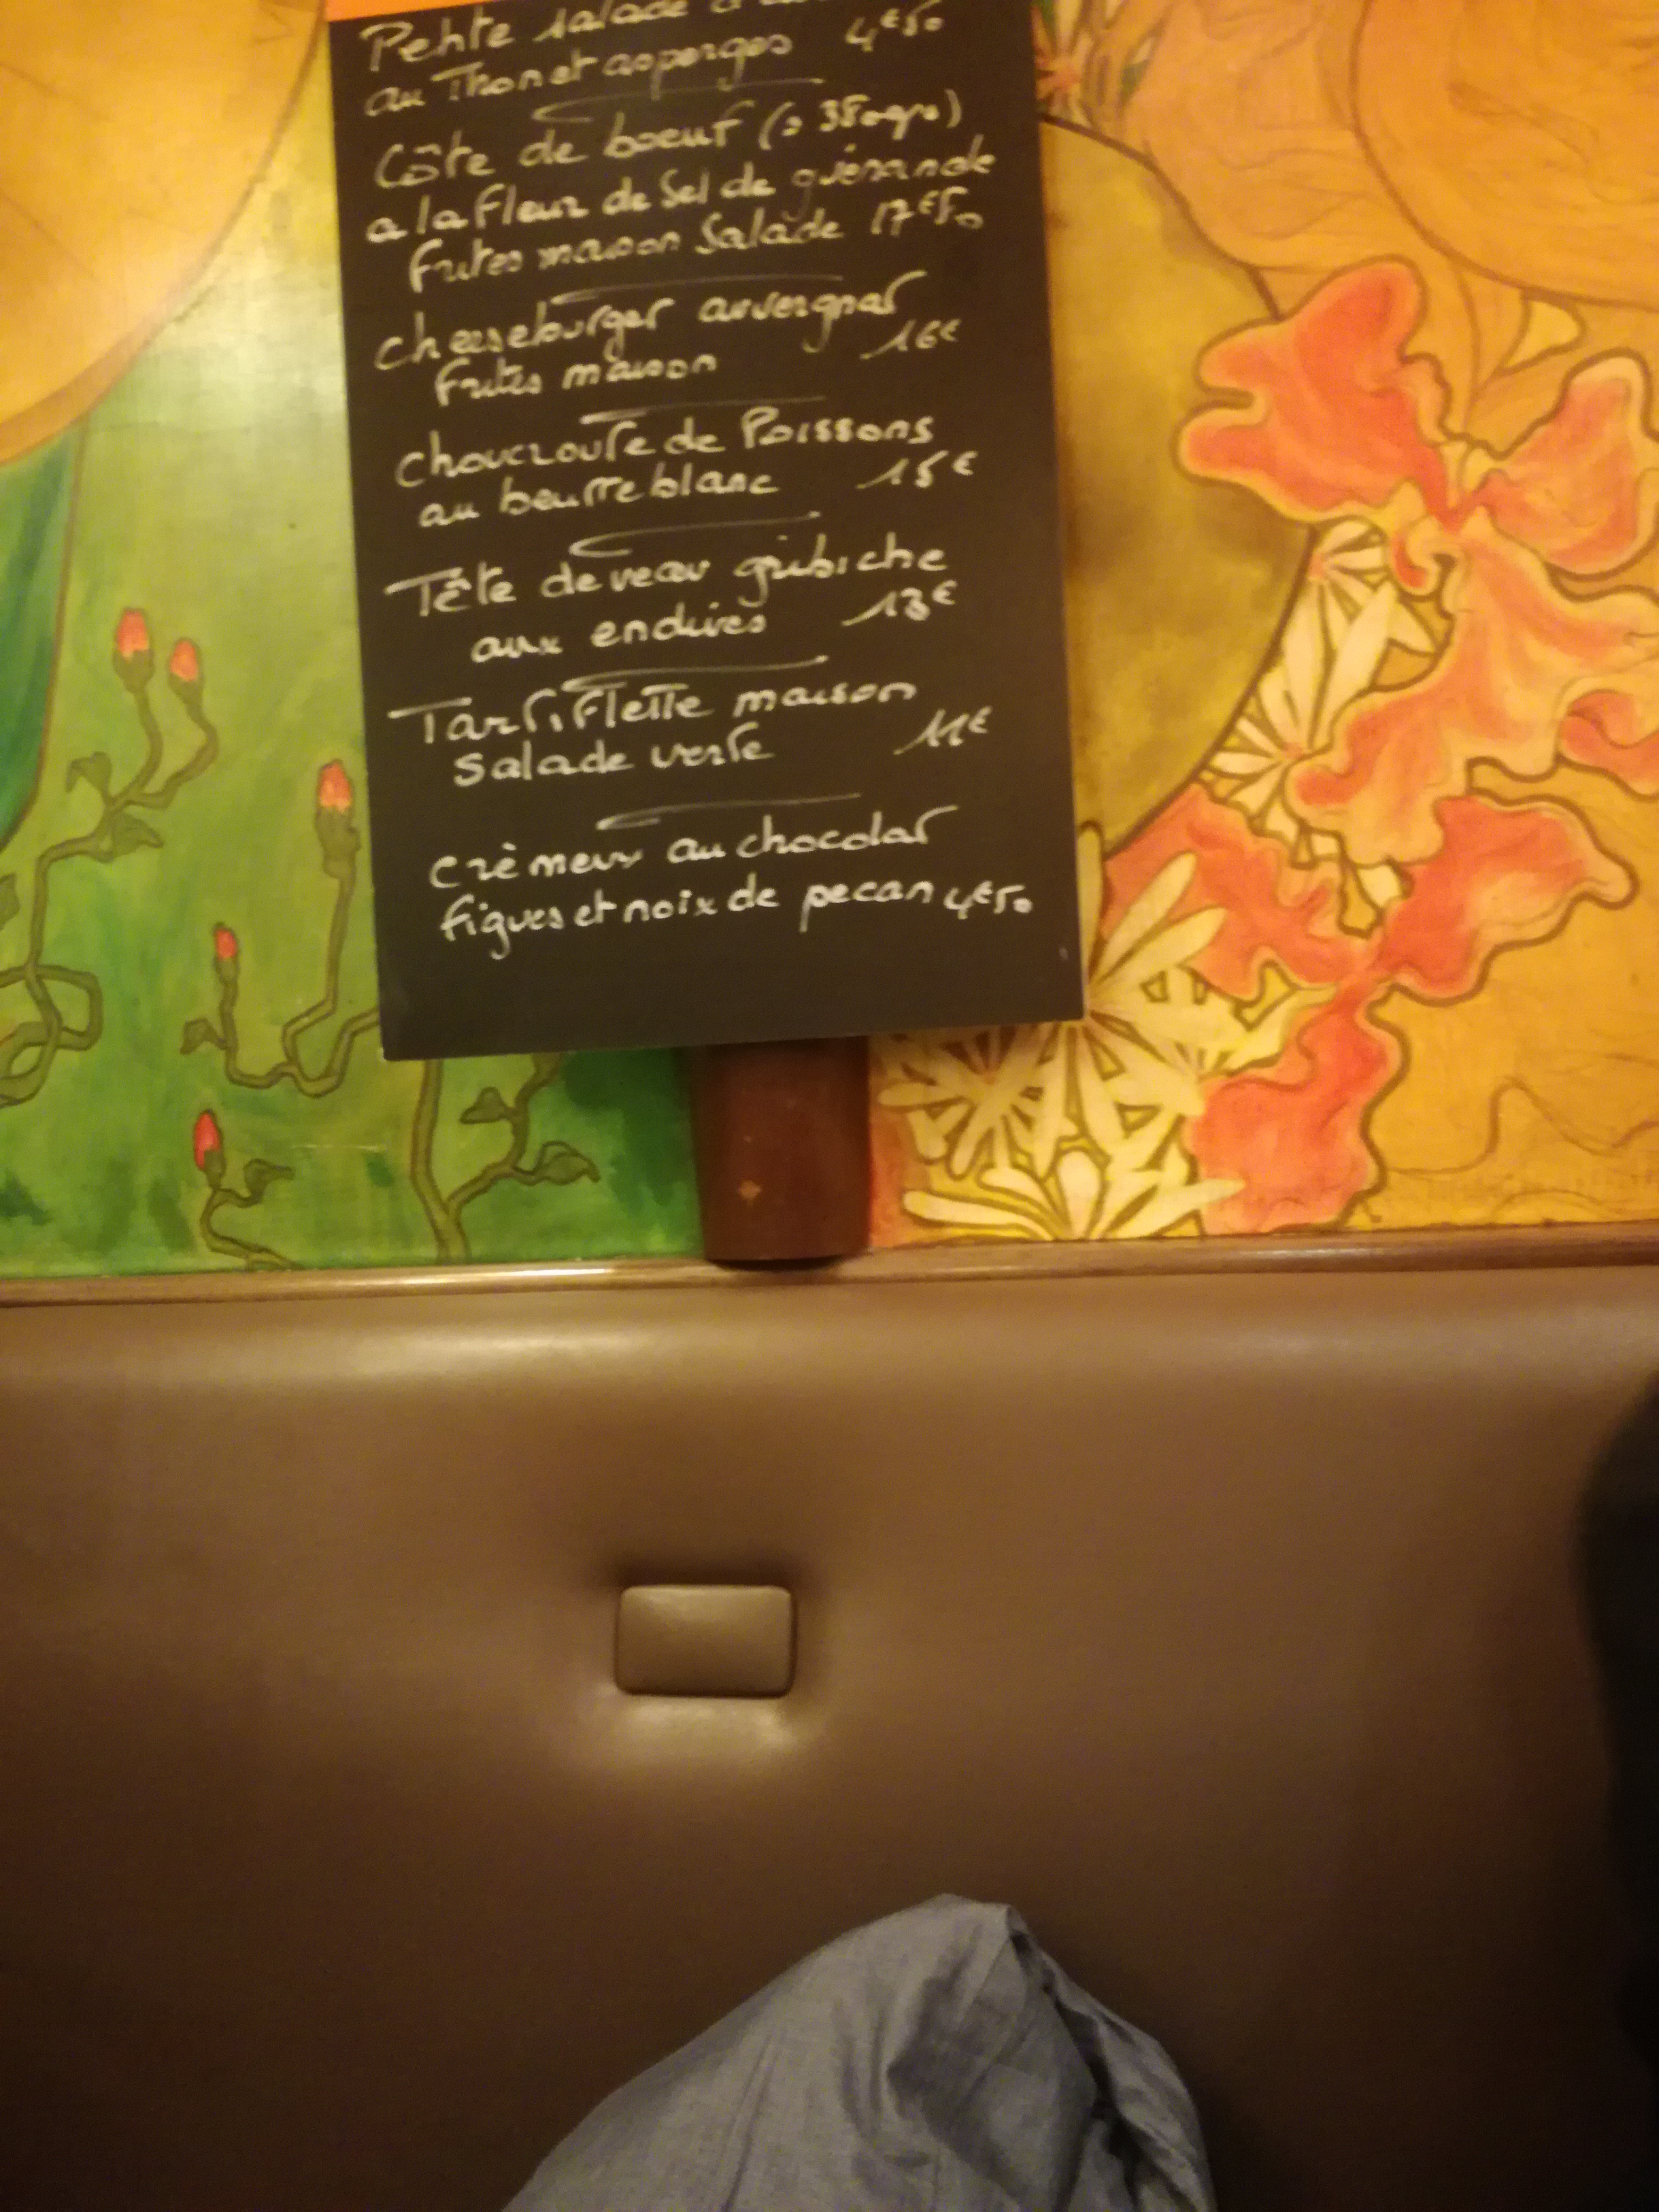 Petite salade
au Thon et asperges 4€50
Côte de boeuf (≥ 350grs)
a la fleur de Sel de guérande
frites maison Salade 17€50
cheeseburger auvergnat
frites maison 16€
choucroute de Poissons
au beurre blanc 15€
Tête de veau gribiche
aux endives 13€
Tartiflette maison
Salade verte 11€
crèmeux au chocolat
figues et noix de pecan 4€50